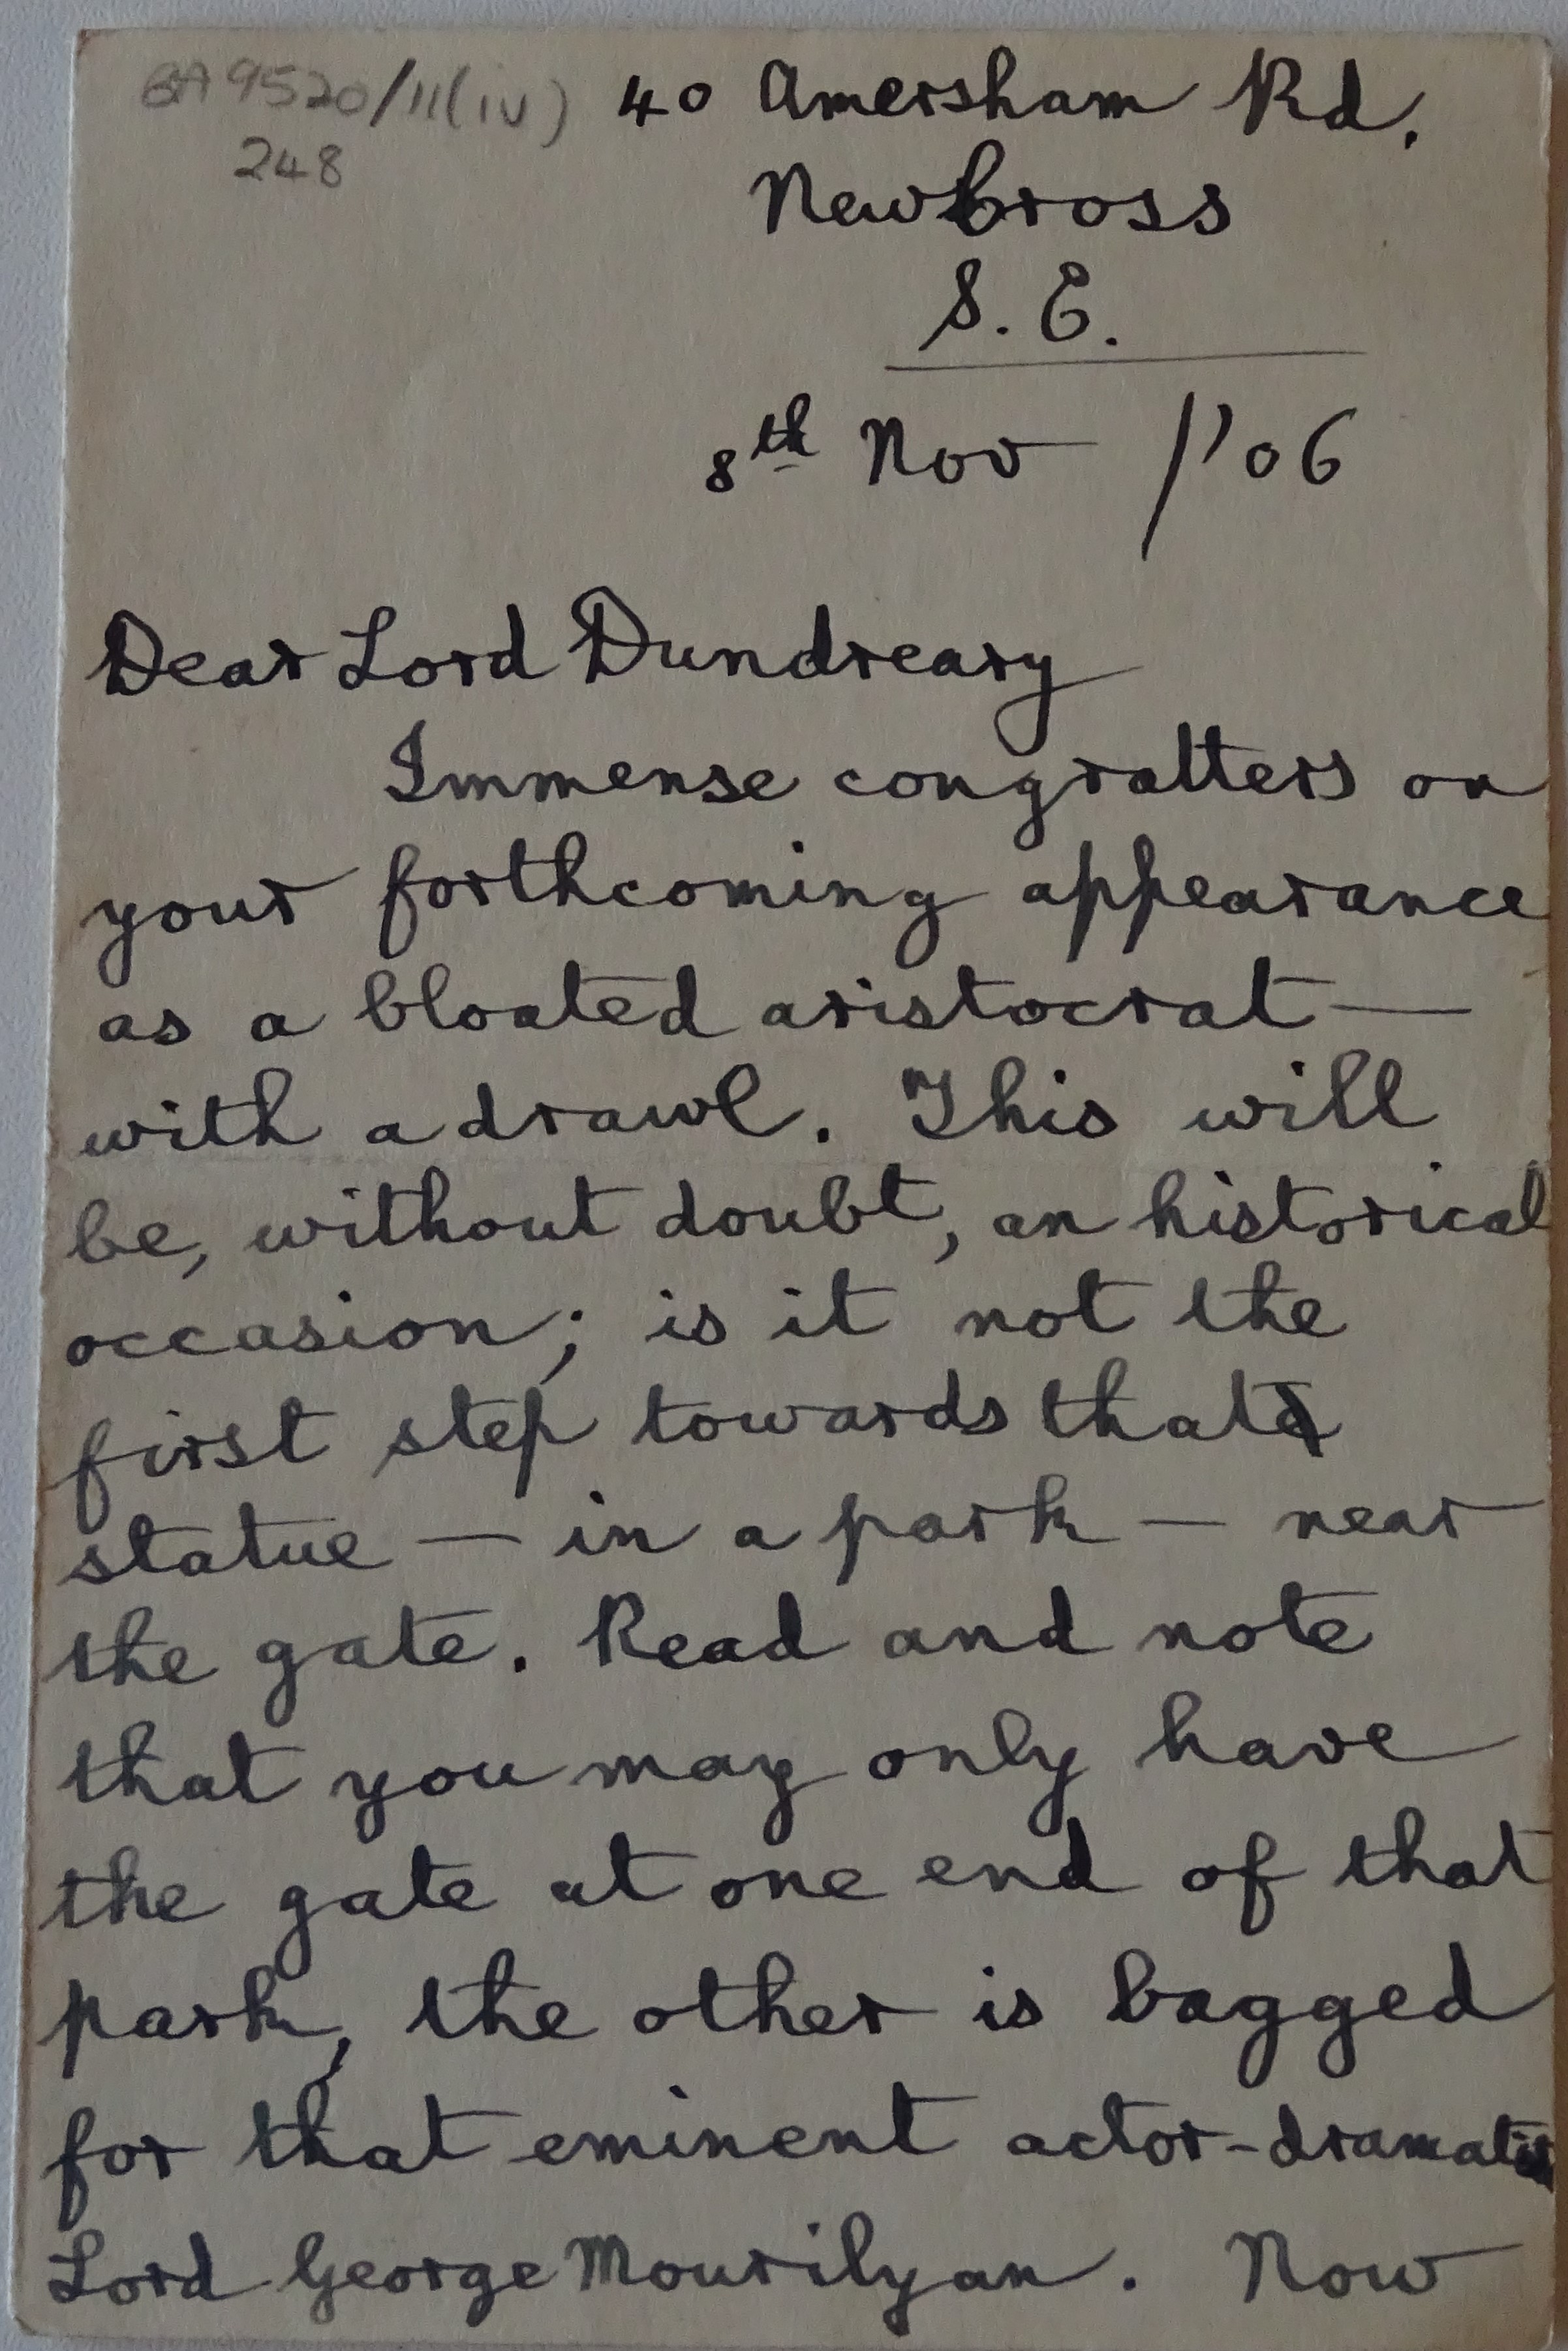 BA 9520/11(iv) 40 Amersham Rd.
248
New Cross
S. E.
8th Nov /'06
Dear Lord Dundreary
Immense congratters on
your forthcoming appearance
as a bloated aristocrat —
with a drawl. This will
be, without doubt, an historical
occasion; is it not the
first step towards that
statue — in a park — near
the gate. Read and note
that you may only have
the gate at one end of that
park, the other is bagged
for that eminent actor-dramatist
Lord George Mourilyan. Now